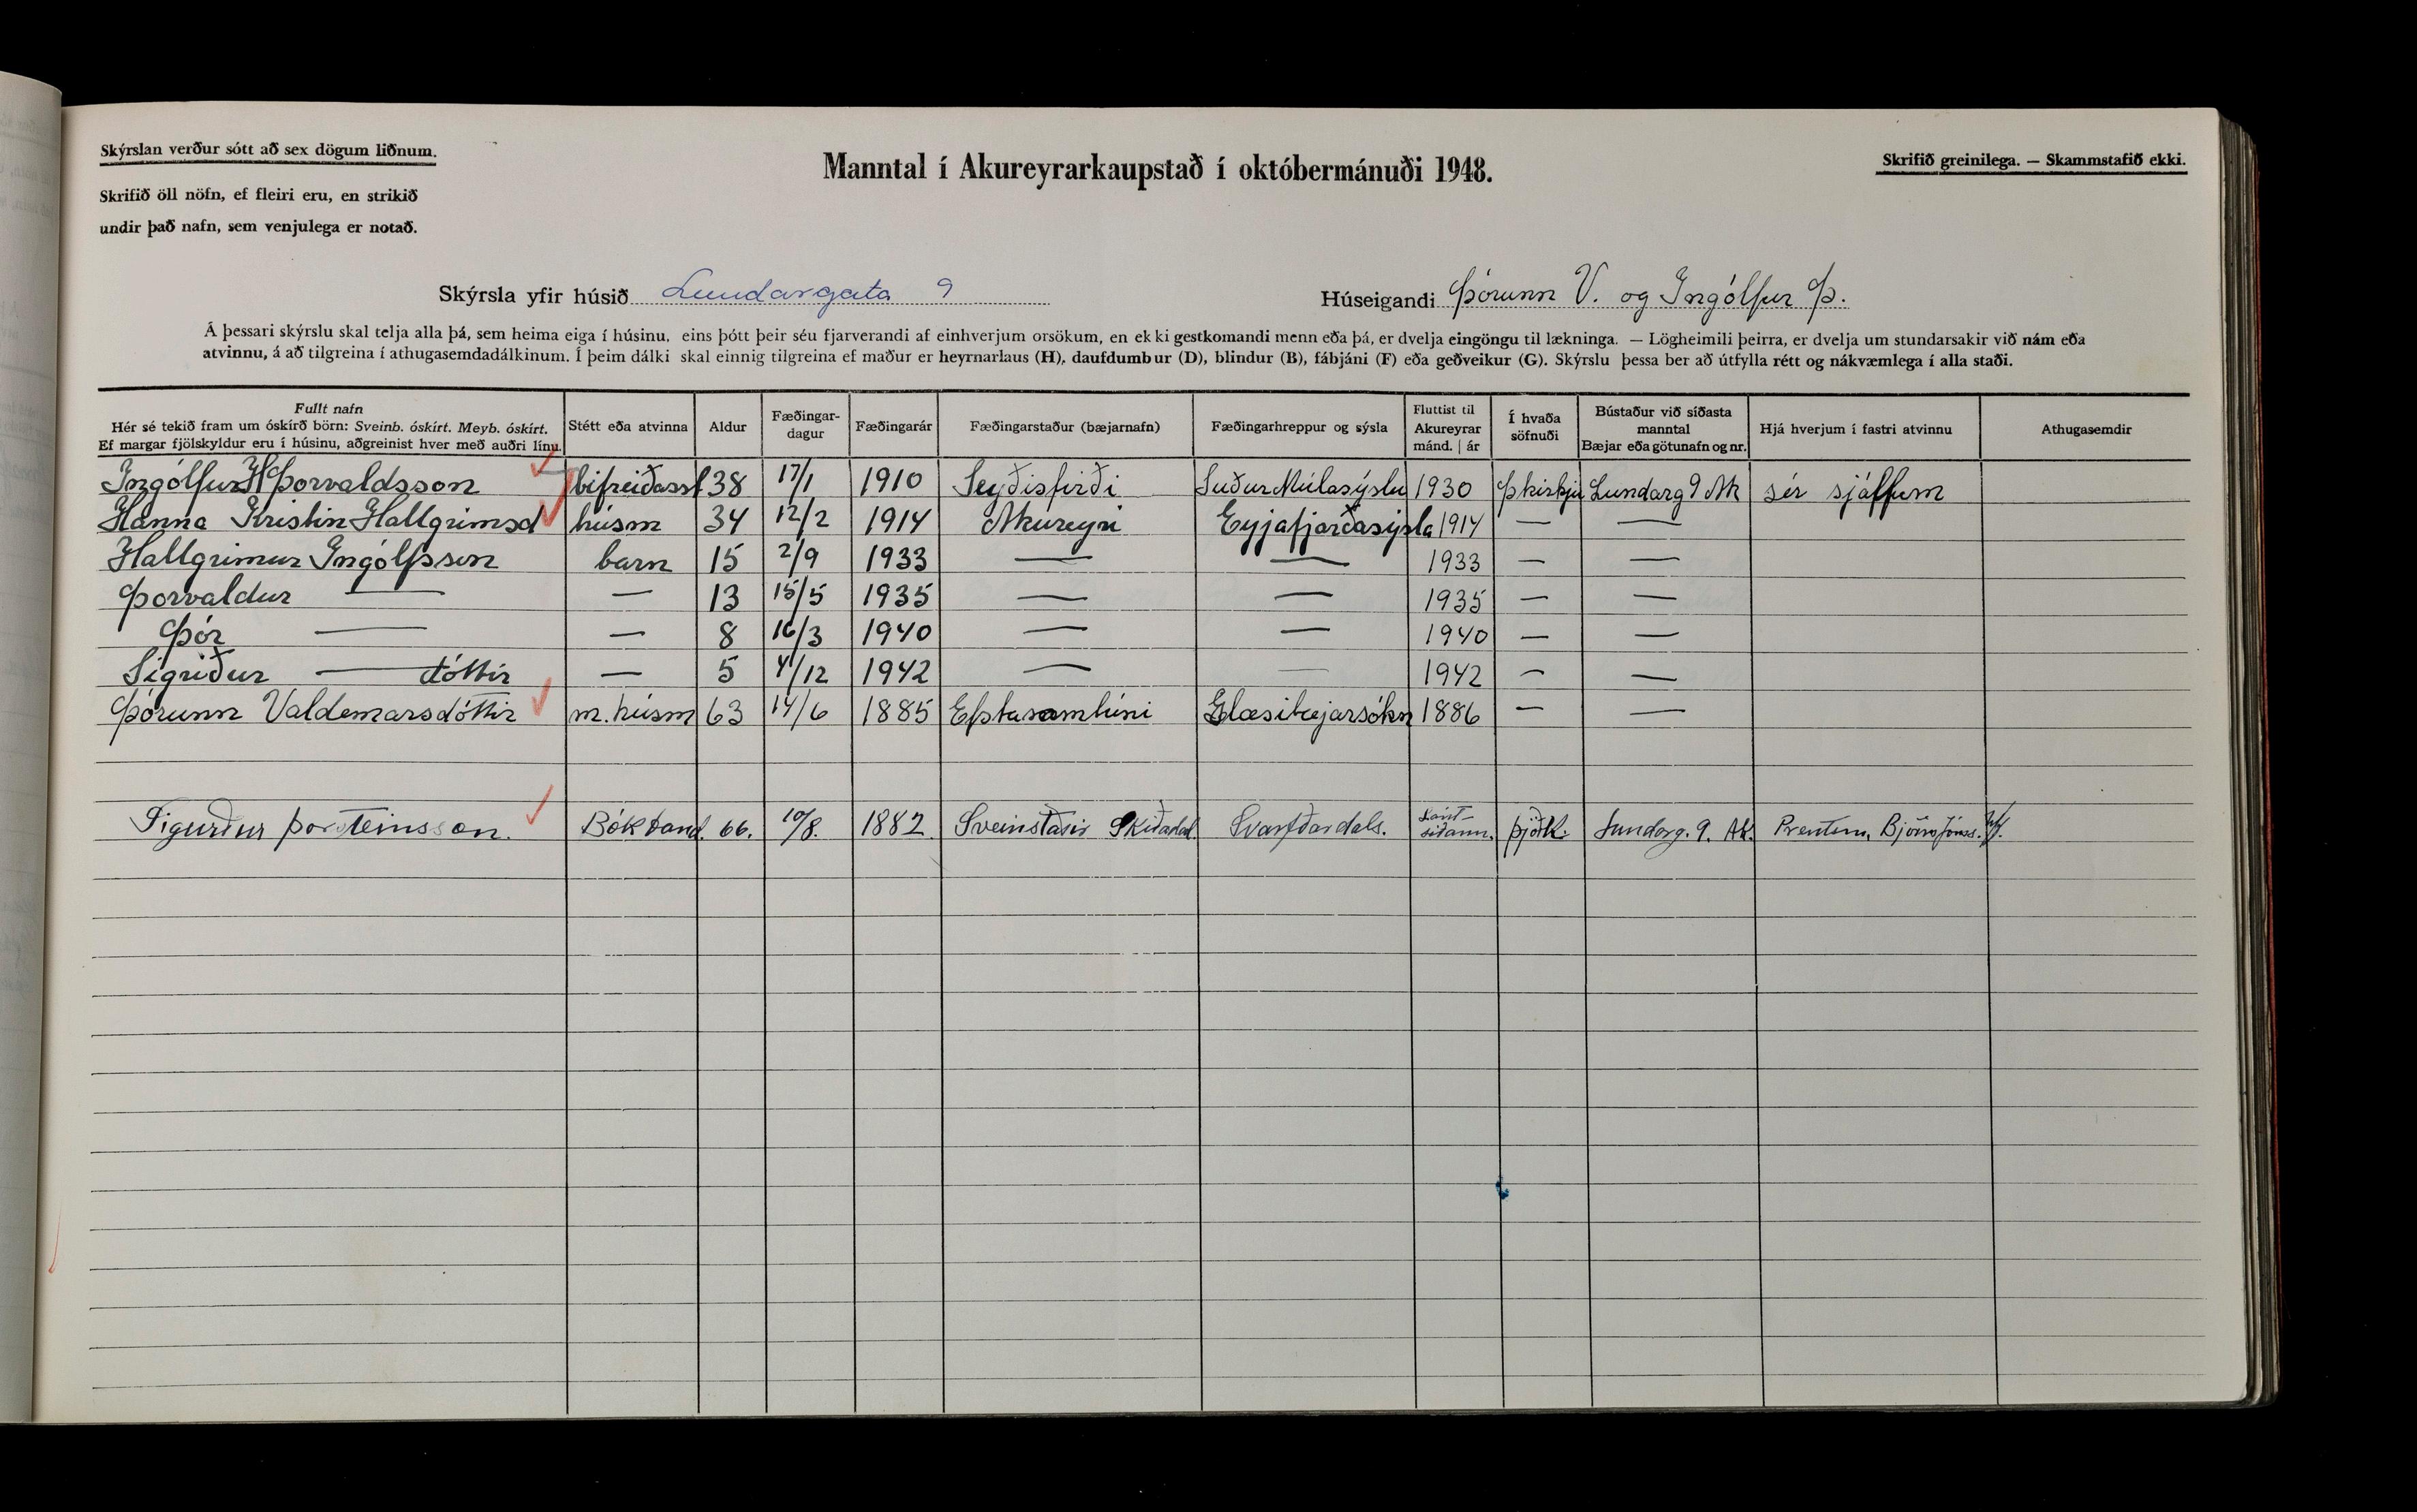 Skýrslan verður sótt að sex dögum liðnum.
Skrifið öll nöfn, ef fleiri eru, en strikið
undir það nafn, sem venjulega er notað.
Manntal í Akureyrarkaupstað í októbermánuði 1948.
Skrifið greinilega. — Skammstafið ekki.
Skýrsla yfir húsið Lundargata 9
Húseigandi Þórunn V. og Ingólfur Þ.
Á þessari skýrslu skal telja alla þá, sem heima eiga í húsinu, eins þótt þeir séu fjarverandi af einhverjum orsökum, en ekki gestkomandi menn eða þá, er dvelja eingöngu til lækninga. — Lögheimili þeirra, er dvelja um stundarsakir við nám eða
atvinnu, á að tilgreina í athugasemdadálkinum. Í þeim dálki skal einnig tilgreina ef maður er heyrnarlaus (H), daufdumbur (D), blindur (B), fábjáni (F) eða geðveikur (G). Skýrslu þessa ber að útfylla rétt og nákvæmlega í alla staði.
Fullt nafn
Hér sé tekið fram um óskírð börn: Sveinb. óskírt. Meyb. óskírt.
Ef margar fjölskyldur eru í húsinu, aðgreinist hver með auðri línu.
Stétt eða atvinna
Aldur
Fæðingar-
dagur
Fæðingarár
Fæðingarstaður (bæjarnafn)
Fæðingarhreppur og sýsla
Fluttist til
Akureyrar
mánd. | ár
Í hvaða
söfnuði
Bústaður við síðasta
manntal
Bæjar eða götunafn og nr.
Hjá hverjum í fastri atvinnu
Athugasemdir
Ingólfur H Þorvaldsson bifreiðasst 38 17/1 1910 Seyðisfirði Suður Múlasýslu 1930 Þkirkju Lundarg 9 Ak sér sjálfum
Hanna Kristin Hallgrimsd húsm 34 12/2 1914 Akureyri Eyjafjarðasýsla 1914 — —
Hallgrimur Ingólfsson barn 15 2/9 1933 — — 1933 — —
Þorvaldur — — 13 15/5 1935 — — 1935 — —
Þór — — 8 16/3 1940 — — 1940 — —
Sigriður — dóttir — 5 4/12 1942 — — 1942 — —
Þórunn Valdemarsdóttir m. húsm 63 14/6 1885 Efstasamtúni Glæsibæjarsókn 1886 — —
Sigurður Þorsteinsson. Bókband. 66. 10/8. 1882 Sveinstaðir Skíðadal Svarfðardals. þjóðk. Lundarg. 9. Ak. Prentsm. Björns Jónss. h/f.